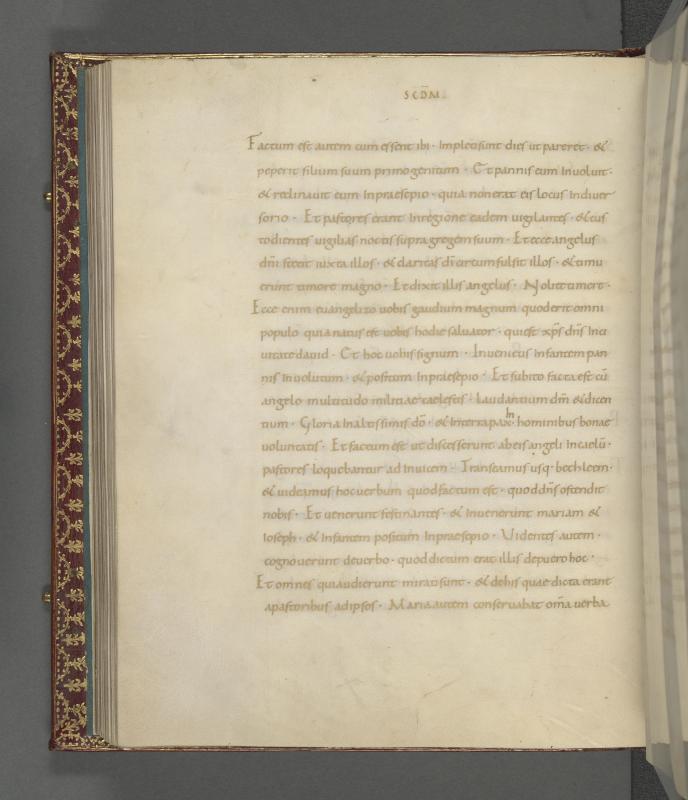 SCDM̅
Factum est autem cum essent ibi · Impleti sunt dies ut pareret · &
peperit filium suum primogenitum · Et pannis eum Inuoluit ·
& reclinauit eum Inpraesepio · quia non erat eis locus Indiuer
sorio · Et pastores erant Inregione eadem uigilantes · & cus
todientes uigilias noctis supra gregem suum · Et ecce angelus
dn̅i stetit iuxta illos · & claritas dı̅ circumfulsit illos · & timu
erunt timore magno · Et dixit illis angelus · Nolite timere ·
Ecce enim euangelizo uobis gaudium magnum quod erit omni
populo quia natus est uobis hodie saluator · qui est xp̅s dn̅s Inci
uitate dauid · Et hoc uobis signum · Inuenietis Infantem pan
nis Inuolutum · & positum Inpraesepio · Et subito facta est cu̅
angelo multitudo militiae caelestis · Laudantium dm̅ & dicen
tium · Gloria Inaltissimis do̅ · & Interra pax · In hominibus bonae
uoluntatis · Et factum est ut discesserunt abeis angeli Incaelu̅ ·
pastores loquebantur ad Inuicem · Transeamus usq· bethleem ·
& uideamus hoc uerbum quod factum est · quod dn̅s ostendit
nobis · Et uenerunt festinantes · & Inuenerunt mariam &
Ioseph · & Infantem positum Inpraesepio · Uidentes autem ·
cognouerunt deuerbo · quod dictum erat illis depuero hoc ·
Et omnes qui audierunt mirati sunt · & dehis quae dicta erant
apastoribus adipsos · Maria autem conseruabat om̅a uerba